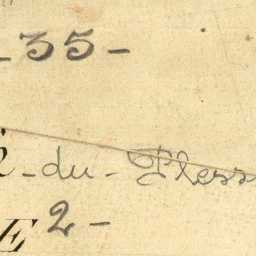 - 35 -
- du - Pless
E 2 -